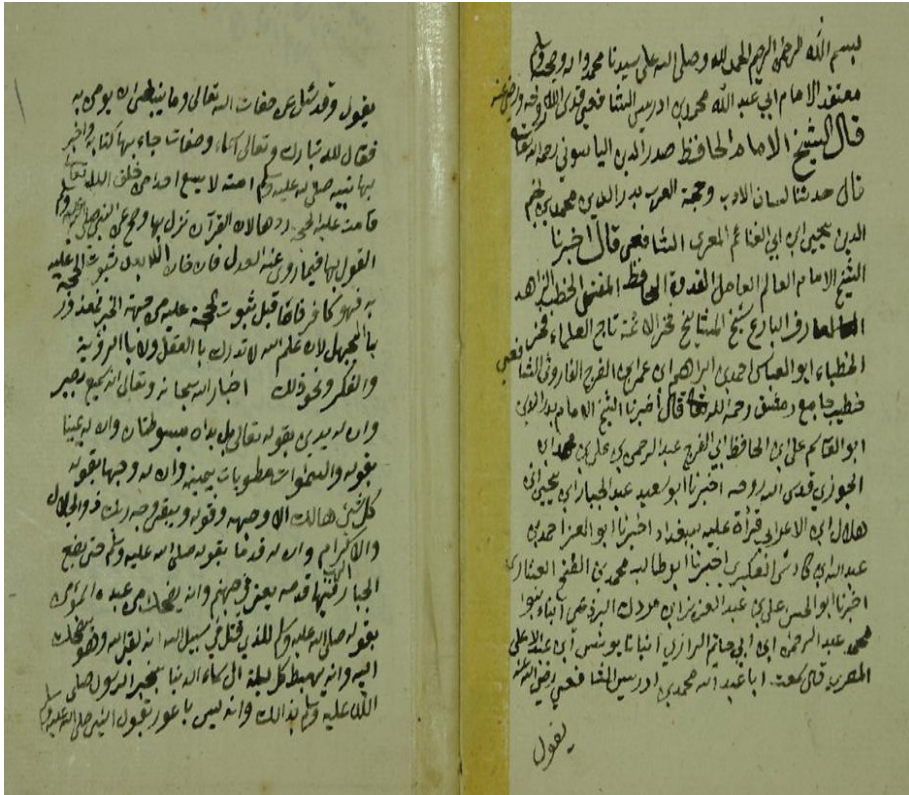 بسم الله الرحمن الرحيم الحمد لله وصلى الله على سيدنا محمد واله وصحبه وسلم
معتقد الامام ابي عبد الله محمد بن ادريس الشافعي قدس الله روحه ورضي عنه
قال الشيخ الامام الحافظ صدر الدين الياسوني رحمه الله تعالى
قال حدثنا لسان الادب وحجة العرب بدر الدين محمد بن نجم
الدين يحيى ابن ابي الغنائم المعري الشافعي قال اخبرنا
الشيخ الامام العالم العامل القدوة الحافظ المفتى الخطيب الزاهد
العارف البارع شيخ المشايخ فخر الائمة تاج العلماء فخر
الخطباء ابو العباس احمد بن ابراهيم ابن عمر ابن الفرج الفاروثي الشافعي
خطيب جامع دمشق رحمه الله قال أخبرنا الشيخ الامام بدر الدين
ابو القاسم على ابن الحافظ ابي الفرج عبد الرحمن بن على بن محمد ابن
الجوزي قدس الله روحه اخبرنا ابو سعيد عبد الجبار ابن يحيى ابن
هلال ابن الاعرابي قرأة عليه ببغداد اخبرنا ابو العز احمد بن
عبد الله بن كادش العكبري اخبرنا ابو طالب محمد بن الفتح العشاري
اخبرنا ابو الحسن على بن عبد العزيز ابن مردك البرذعي أنباءنا ابو
محمد عبد الرحمن ابن ابي حاتم الرازي أنبانا يونس ابن عبد الاعلى
المصري قال سمعت ابا عبد الله محمد بن ادريس الشافعي رضي الله عنه
يقول
يقول وقد سئل عن صفات الله تعالى وما ينبغى ان يومن به
فقال لله تبارك وتعالى اسماء وصفات جاء بها كتابه واخبر
بها نبيه صلى الله عليه وسلم امته لا يسع احدا من خلق الله تعالى
قامت عليه الحجة ردها لان القران نزل بها وصح عن النبي صلى الله عليه وسلم
القول بها فيما روى عنه العدل فان خالف ذلك بعد ثبوت الحجة عليه
به فهو كافر فاما قبل ثبوت الحجة عليه من جهة الخبر فمعذور
بالجهل لان علم الله لا تدرك بالعقل ولا بالروية
والفكر ونحو ذلك اخبار الله سبحانه وتعالى انه سميع بصير
وان له يدين بقوله تعالى بل يداه مبسوطتان وان له يمينا
بقوله والسموات مطويات بيمينه وان له وجها بقوله
كل شئ هالك الا وجهه وقوله ويبقى وجه ربك ذو الجلال
والاكرام وان له قدما بقوله صلى الله عليه وسلم حتى يضع
الجبار فيها قدمه يعني في جهنم وانه يضحك من عبده المؤمن
بقوله صلى الله عليه وسلم للذي قتل في سبيل الله انه لقى الله وهو يضحك
اليه وانه يهبط كل ليلة الى سماء الدنيا بخبر الرسول صلى
الله عليه وسلم بذالك وانه ليس باعور بقول النبي صلى الله عليه وسلم